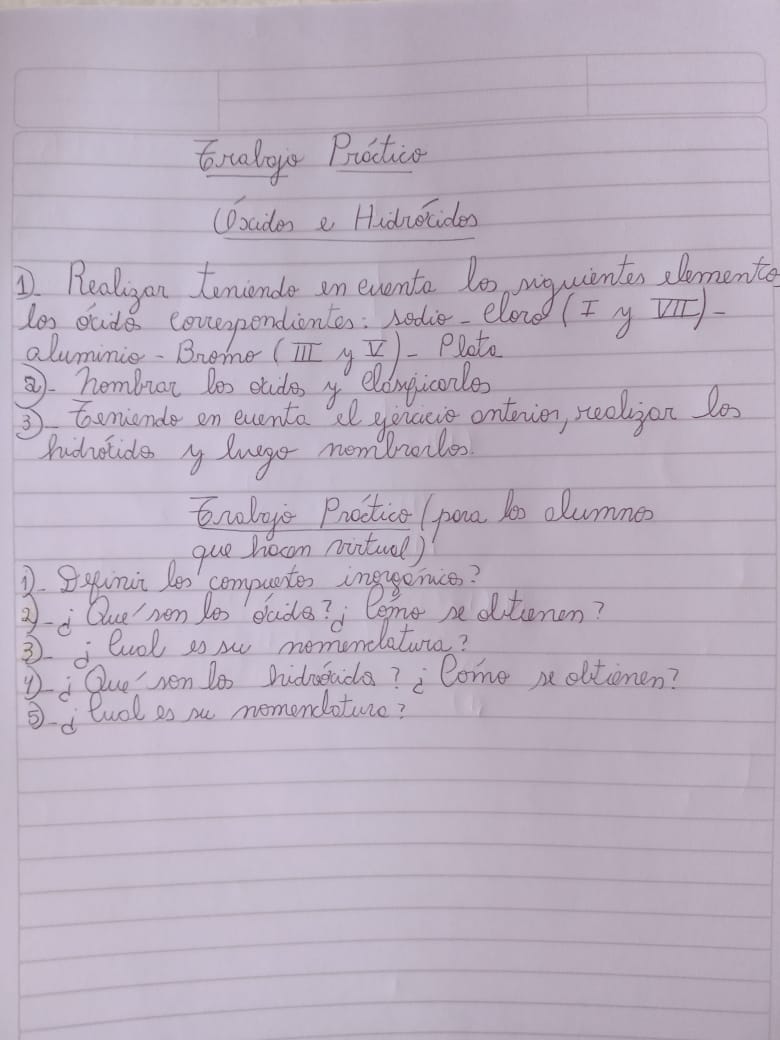 Trabajo Práctico
Óxidos e Hidróxidos
1)- Realizar teniendo en cuenta los siguientes elemento
los óxidos correspondientes: sodio - cloro (I y VII) -
aluminio - Bromo (III y V) - Plata
2)- Nombrar los óxidos y clasificarlos
3)- Teniendo en cuenta el ejercicio anterior, realizar los
hidróxidos y luego nombrarlos.
Trabajo Práctico (para los alumnos
que hacen virtual)
1)- Definir los compuestos inorgánicos?
2)- ¿Qué son los óxidos? ¿Cómo se obtienen?
3)- ¿Cual es su nomenclatura?
4)- ¿Qué son los hidróxidos? ¿Cómo se obtienen?
5)- ¿Cual es su nomenclatura?